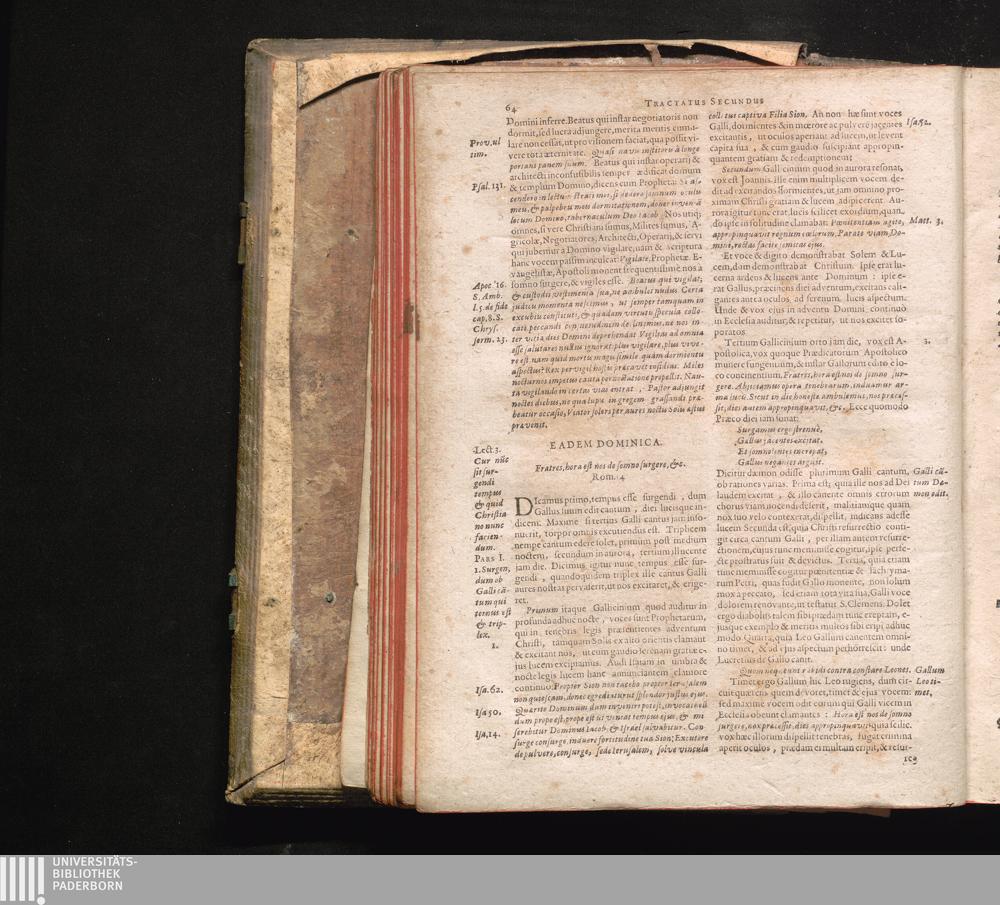 64
TRACTATUS SECUNDUS
Domini inferre. Beatus qui instar negotiatoris non
dormit, sed lucra adjungere, merita mentis cumu-
lare non cessat, ut provisionem faciat, qua possit vi-
vere tota æternitate. Quasi navis institoris à longe
portans panem suum. Beatus qui instar operarij &
architecti inconfusibilis semper ædificat domum
& templum Domino, dicens cum Propheta: Si as-
cendero in lectum strati mei, si dedero somnum oculis
meis, & palpebris meis dormitationem, donec inveniã
locum Domino, tabernaculum Deo Iacob. Nos utiq;
omnes, si vere Christiani sumus, Milites sumus, A-
gricolæ, Negotiatores, Architecti, Operarij, & servi
qui jubemur à Domino vigilare, nam & scriptura
hanc vocem passim inculcat: Vigilare, Prophetæ, E-
vangelistæ, Apostoli monent frequentissime nos a
somno surgere, & vigiles esse. Beatus qui vigilat,
& custodit vestimenta sua, ne ambulet nudus. Certa
judicii momenta nescimus, ut semper tamquam in
excubiis constituti, & quadam virtutis specula collo-
cati, peccandi consuetudinem declinemus, ne nos in-
ter vitia dies Domini deprehendat. Vigilias ad omnia
esse salutares nullus ignorat: plus vigilare, plus vive-
re est: nam quid mortis magis simile quàm dormientis
aspectus? Rex pervigil hostis præcavet insidias. Miles
nocturnos impetus cauta perscrutatione propellit. Nau-
ta vigilando in certas vias intrat, Pastor adjungit
noctes diebus, ne qua lupis in gregem grassandi præ-
beatur occasio, Viator solers per aures noctis Solis æstus
prævenit.
Prov. ul
tim.
Psal. 131.
Apoc. 16.
S. Amb.
l. 5. de fide
cap. 8. S.
Chrys.
serm. 23.
EADEM DOMINICA.
Fratres, hora est nos de somno surgere, &c.
Rom. 14
Lect. 3.
Cur nũc
sit sur-
gendi
tempus
& quid
Christia-
no nunc
facien-
dum.
PARS I.
1. Surgen,
dum ob
Galli cã-
tum qui
ternus est
& trip-
lex.
1.
Isa. 62.
Isa 50.
Isa, 14.
DIcamus primo, tempus esse surgendi, dum
Gallus suum edit cantum, diei lucisque in-
dicem. Maxime si tertius Galli cantus jam inso-
nuerit, torpor omnis excutiendus est. Triplicem
nempe cantum edere solet, primum post medium
noctem, secundum in aurora, tertium illucente
jam die. Dicimus igitur nunc tempus esse sur-
gendi, quandoquidem triplex ille cantus Galli
aures nostras pervaserit, ut nos excitaret, & erige-
ret.
Primum itaque Gallicinium quod auditur in
profunda adhuc nocte, voces sunt Prophetarum,
qui in tenebris legis præsentientes adventum
Christi, tamquam Solis ex alto orientis clamant
& excitant nos, ut eum gaudio serenam gratiæ e-
jus lucem excipiamus. Audi Isaiam in umbra &
nocte legis lucem hanc annunciantem clamore
continuo: Propter Sion non tacebo propter Ierusalem
non quiescam, donec egrediatur ut splendor justus ejus.
Quærite Dominum dum inveniri potest, invocate eũ
dum prope est, prope est ut veniat tempus ejus, & mi
serebitur Dominus Iacob, & Israel salvabitur. Con-
surge consurge, induere fortitudine tua Sion; Excutere
de pulvere, consurge, sede Ierusalem, solve vincula
colli tui captiva Filia Sion. An non hæ sunt voces
Galli, dormientes & in mœrore ac pulvere jacentes
excitantis, ut oculos aperiant ad lucem, ut levent
capita sua, & cum gaudio suscipiant appropin-
quantem gratiam & redemptionem?
Secundum Gallicinium quod in aurora resonat,
vox est Joannis. Ille enim multiplicem vocem de-
dit ad excitandos dormientes, ut jam omnino pro-
ximam Christi gratiam & lucem adspicerent. Au-
rora igitur tunc erat, lucis scilicet exordium, quan-
do ipse in solitudine clamabat: Pœnitentiam agite,
appropinquavit regnum cœlorum, Parate viam Do-
mini, rectas facite semitas ejus.
Et voce & digito demonstrabat Solem & Lu-
cem, dum demonstrabat Christum. Ipse erat lu-
cerna ardens & lucens ante Dominum: ipse e-
rat Gallus, præcinens diei adventum, excitans cali-
gantes antea oculos, ad serenum lucis aspectum.
Unde & vox ejus in adventu Domini continuò
in Ecclesia auditur, & repetitur, ut nos excitet so-
poratos.
Tertium Gallicinium orto jam die, vox est A-
postolica, vox quoque Prædicatorum Apostolico
munere fungentium, & instar Gallorum edito è lo-
co concinentium. Fratres, hora est nos de somno sur-
gere. Abjiciamus opera tenebrarum, induamur ar-
ma lucis. Sicut in die honeste ambulemus, nox præces-
sit, dies autem appropinquavit, &c. Ecce quomodo
Præco diei jam sonat:
Surgamus ergo strenuè,
Gallus jacentes excitat,
Et somnolentes increpat,
Gallus negantes arguit.
Dicitur dæmon odisse plurimum Galli cantum,
ob rationes varias. Prima est; quia ille nos ad Dei
laudem excitat, & illo canente omnis errorum
chorus viam nocendi deserit, malitiamque quam
nox suo velo contexerat, dispellit, indicans adesse
lucem. Secunda est, quia Christi resurrectio conti-
git circa cantum Galli, per illam autem resurre-
ctionem, cujus tunc meminisse cogitur, ipse perfe-
cte prostratus fuit & devictus. Tertia, quia etiam
tunc meminisse cogitur pœnitentiæ & lachryma-
rum Petri, quas fudit Gallo monente, non solum
mox à peccato, sed etiam tota vita sua, Galli voce
dolorem renovante, ut testatur S. Clemens. Dolet
ergo diabolus talem sibi prædam tunc ereptam, e-
jusque exemplo & meritis multos sibi eripi adhuc
modo. Quarta, quia Leo Gallum canentem omni-
no timet, & ad ejus aspectum perhorrescit: unde
Lucretius de Gallo canit.
Quem nequeunt rabidi contra constare Leones.
Timet ergo Gallum hic Leo rugiens, dum cir-
cuit quærens quem devoret, timet & ejus vocem:
sed maxime vocem odit eorum qui Galli vicem in
Ecclesia obeunt clamantes: Hora est nos de somno
surgere, nox præcessit, dies appropinquavit: quia scilic.
vox hæc illorum dispellit tenebras, fugat crimina
aperit oculos, prædam ei multam eripit, & resur-
Isa 52.
Matt. 3.
3.
Galli cã-
tum Dæ-
mon odit.
Gallum
Leo ti-
met,
ICO
UNIVERSITÄTS-
BIBLIOTHEK
PADERBORN